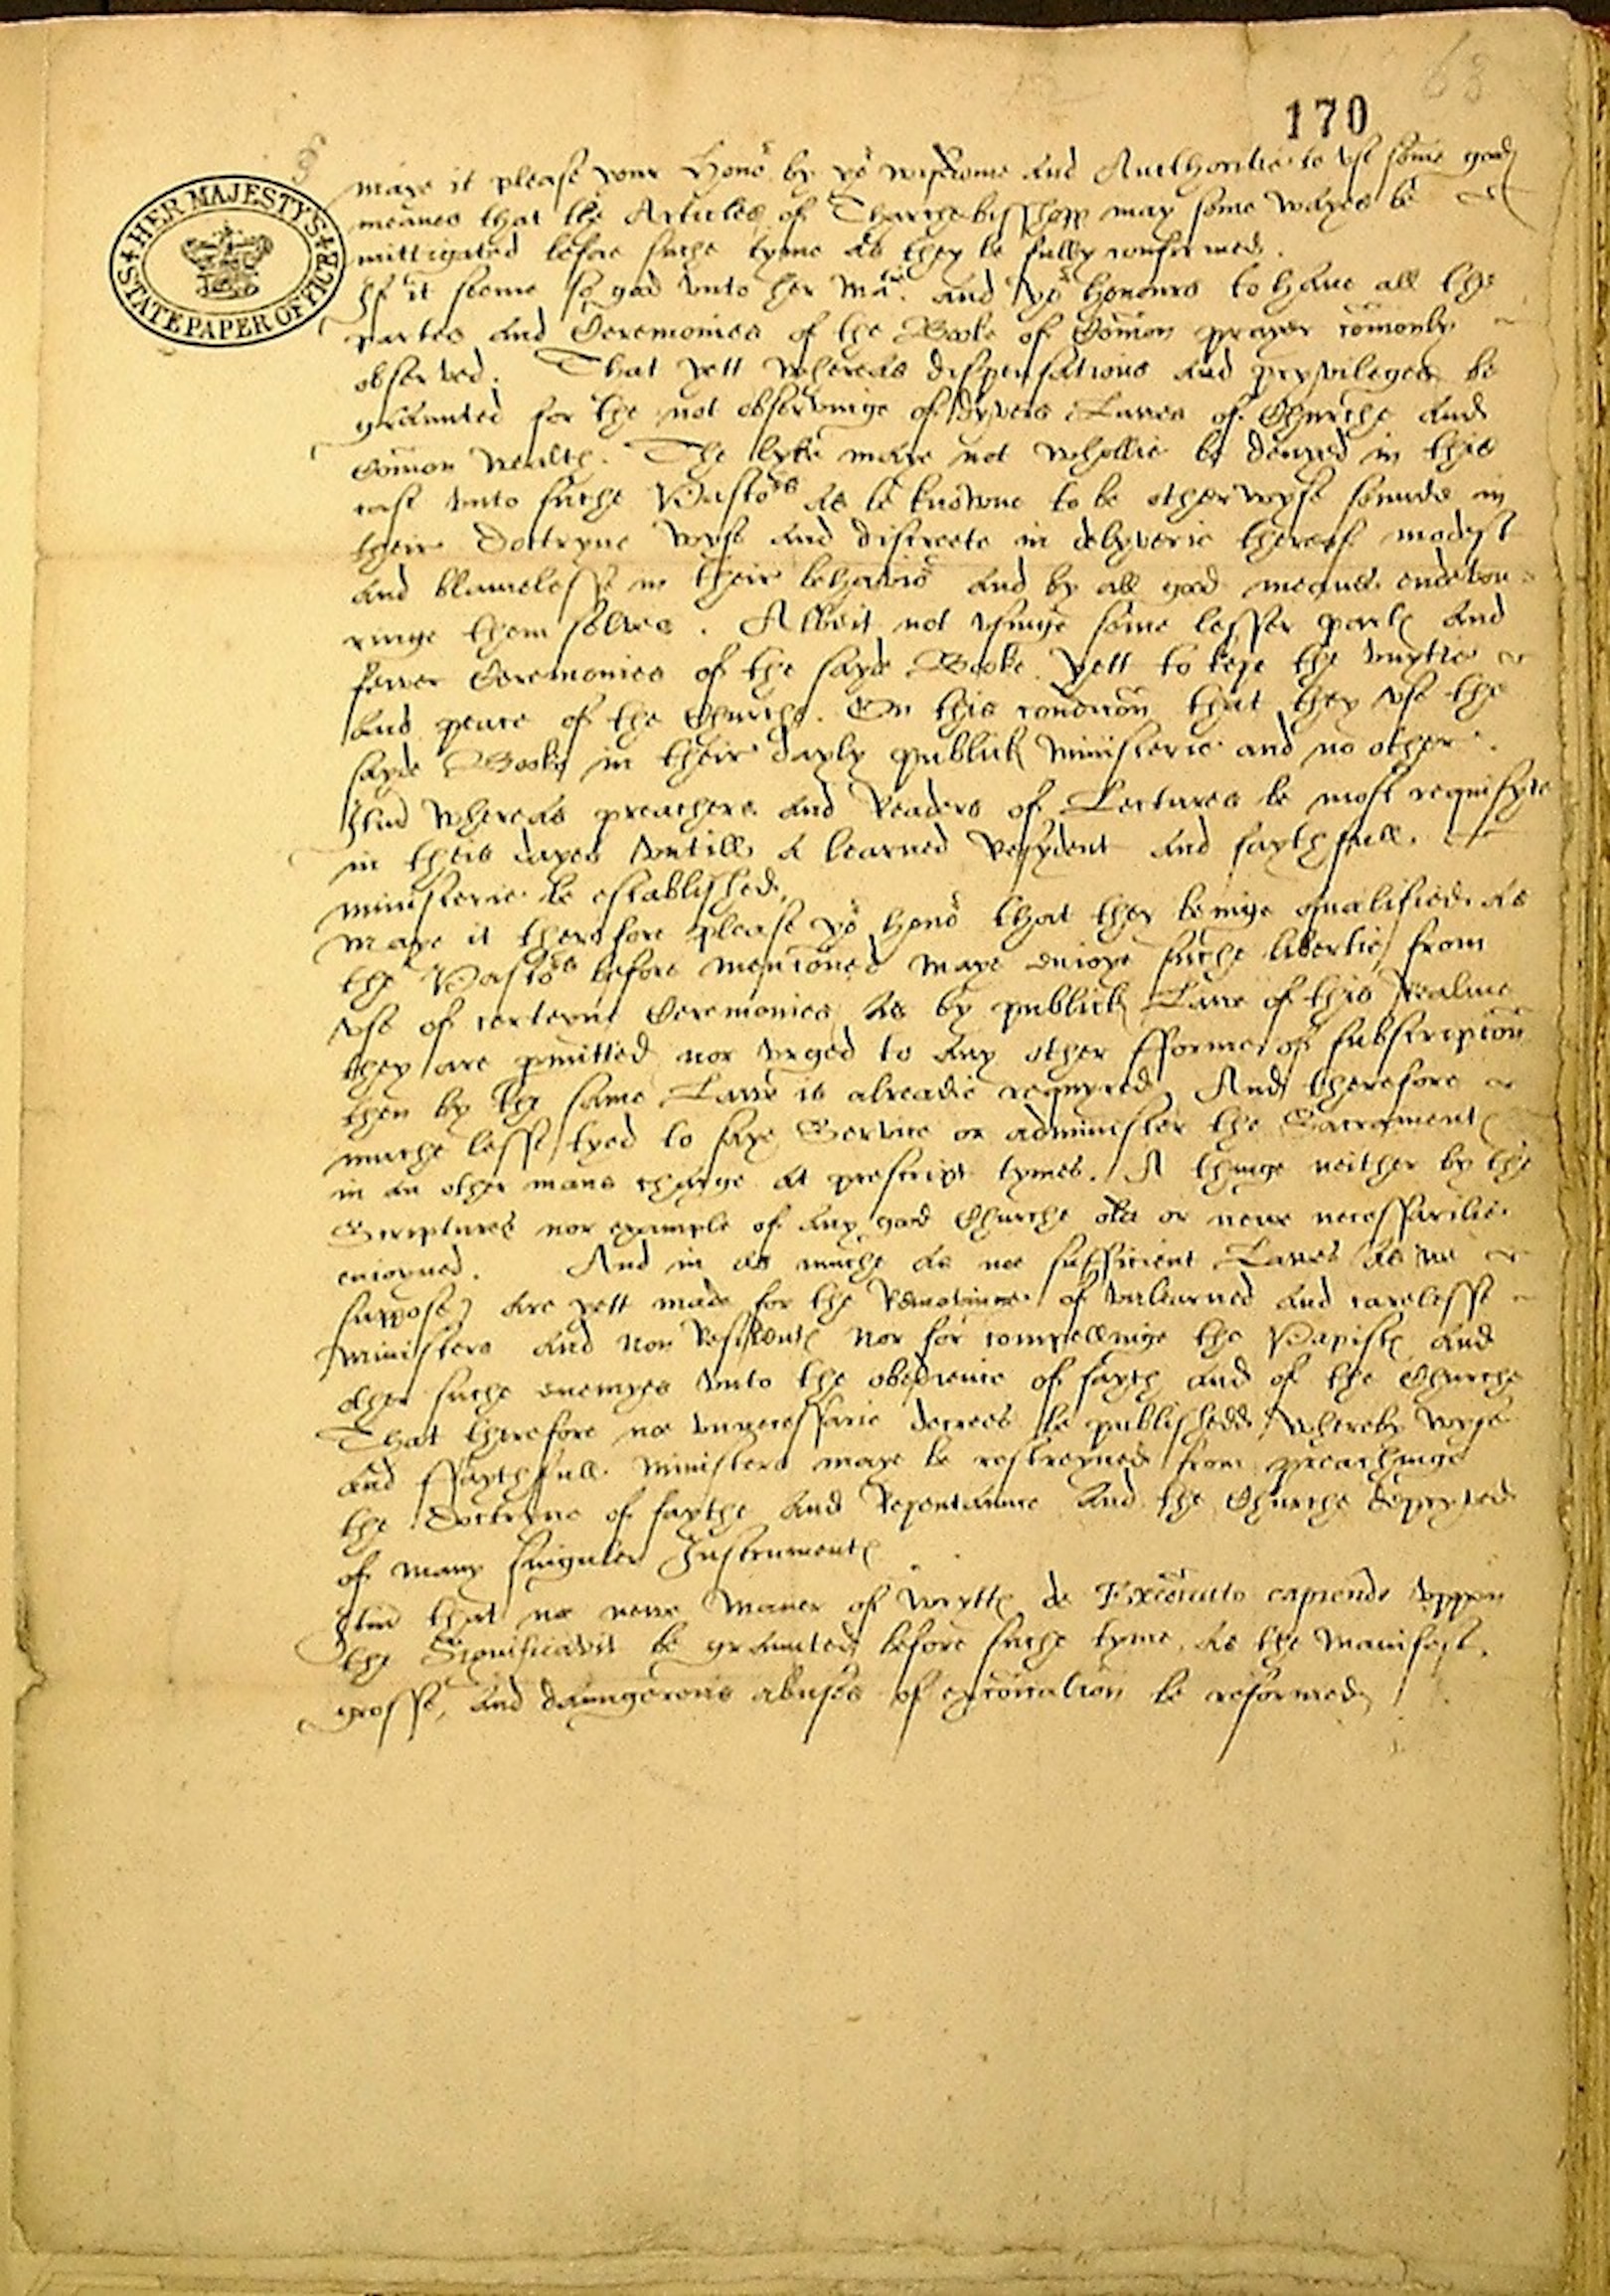 68
170
HER MAJESTY'S STATE PAPER OFFICE
maye it please your Honors by yor wysdome and Aucthoritie to vse some good
meanes that the Articles of Tharchebisshopp may some wayes be
mittigated before suche tyme as they be fully confirmed.
If it seeme so good vnto her Matie. and yor honours to haue all the
partes and Ceremonies of the Booke of Comon prayer comonly
observed. That yett whereas dispensations and pryvileges be
graunted for the not observinge of dyvers Lawes of Churche and
Comon wealth. The lyke maye not whollie be denyed in this
case vnto suche Pastors as be knowne to be otherwyse sounde in
their Doctryne wyse and discreete in delyverie thereof modest
and blamelesse in their behavior and by all good meanes endevou-
ringe them selves. Albeit not vsinge some lesser partes and
fewer Ceremonies of the sayde Booke. yett to kepe the vnytie
and peace of the Churche. On this condicion that they vse the
sayde Booke in their dayly publick Ministerie and no other.
Item whereas preachers and Readers of Lectures be most requisyte
in theis dayes vntill a learned Resydent and faythfull
ministerie be established.
Maye it therefore please yor honors that they beinge qualified as
the Pastors before mencioned maye enioye suche libertie from
vse of certeyne Ceremonies as by publick Lawe of this Realme
they are permitted nor vrged to any other fforme of subscripcion
then by the same Lawe is alreadie requyred, And therefore
muche lesse tyed to saye Service or administer the Sacramentes
in an other mans charge at prescript tymes. A thinge neither by the
Scriptures nor example of any good Churche olde or newe necessarilie
enioyned. And in as muche as noe sufficient Lawes (as we
suppose) are yett made for the Removinge of vnlearned and carelesse
Ministers and non Residentes nor for compellinge the Papistes and
other suche enemyes vnto the obedience of fayth and of the Churche
That therefore noe vnnecessarie decrees be published whereby wyse
and ffaythfull Ministers maye be restreyned from preachinge
the Doctryne of faythe and Repentaunce and the Churche depryved
of many singuler Instrumentes
Item that noe newe Maner of wryttes de Excomunicato capiendo vppon
the Significavit be graunted before suche tyme, as the Manifest,
grosse, and daungerous abuses of excomunication be reformed